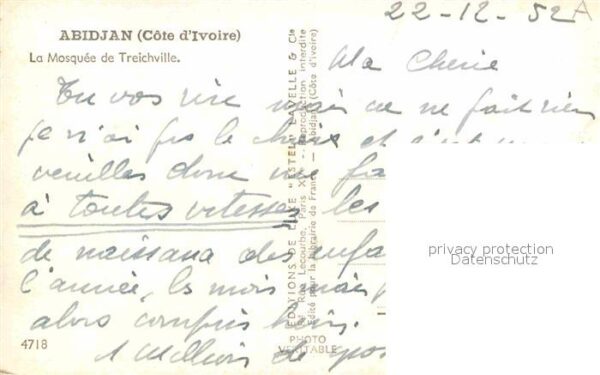 22-12-52
ABIDJAN (Côte d'Ivoire)
La Mosquée de Treichville.
Ma Cherie
Tu vas rire mais ca ne fait rien
je n'ai pas le choix et
veuilles donc me
à toutes vitesses les
de naissance des enfa
l'année, les mois mais
alors compris hein.
1 Million de
4718
EDITIONS DE LUXE "ESTEL" LAVELLE & Cie
Rue Lecourbe, Paris X - Reproduction interdite
Edité pour la Librairie de France - Abidjan (Côte d'Ivoire)
PHOTO
VERITABLE
privacy protection
Datenschutz